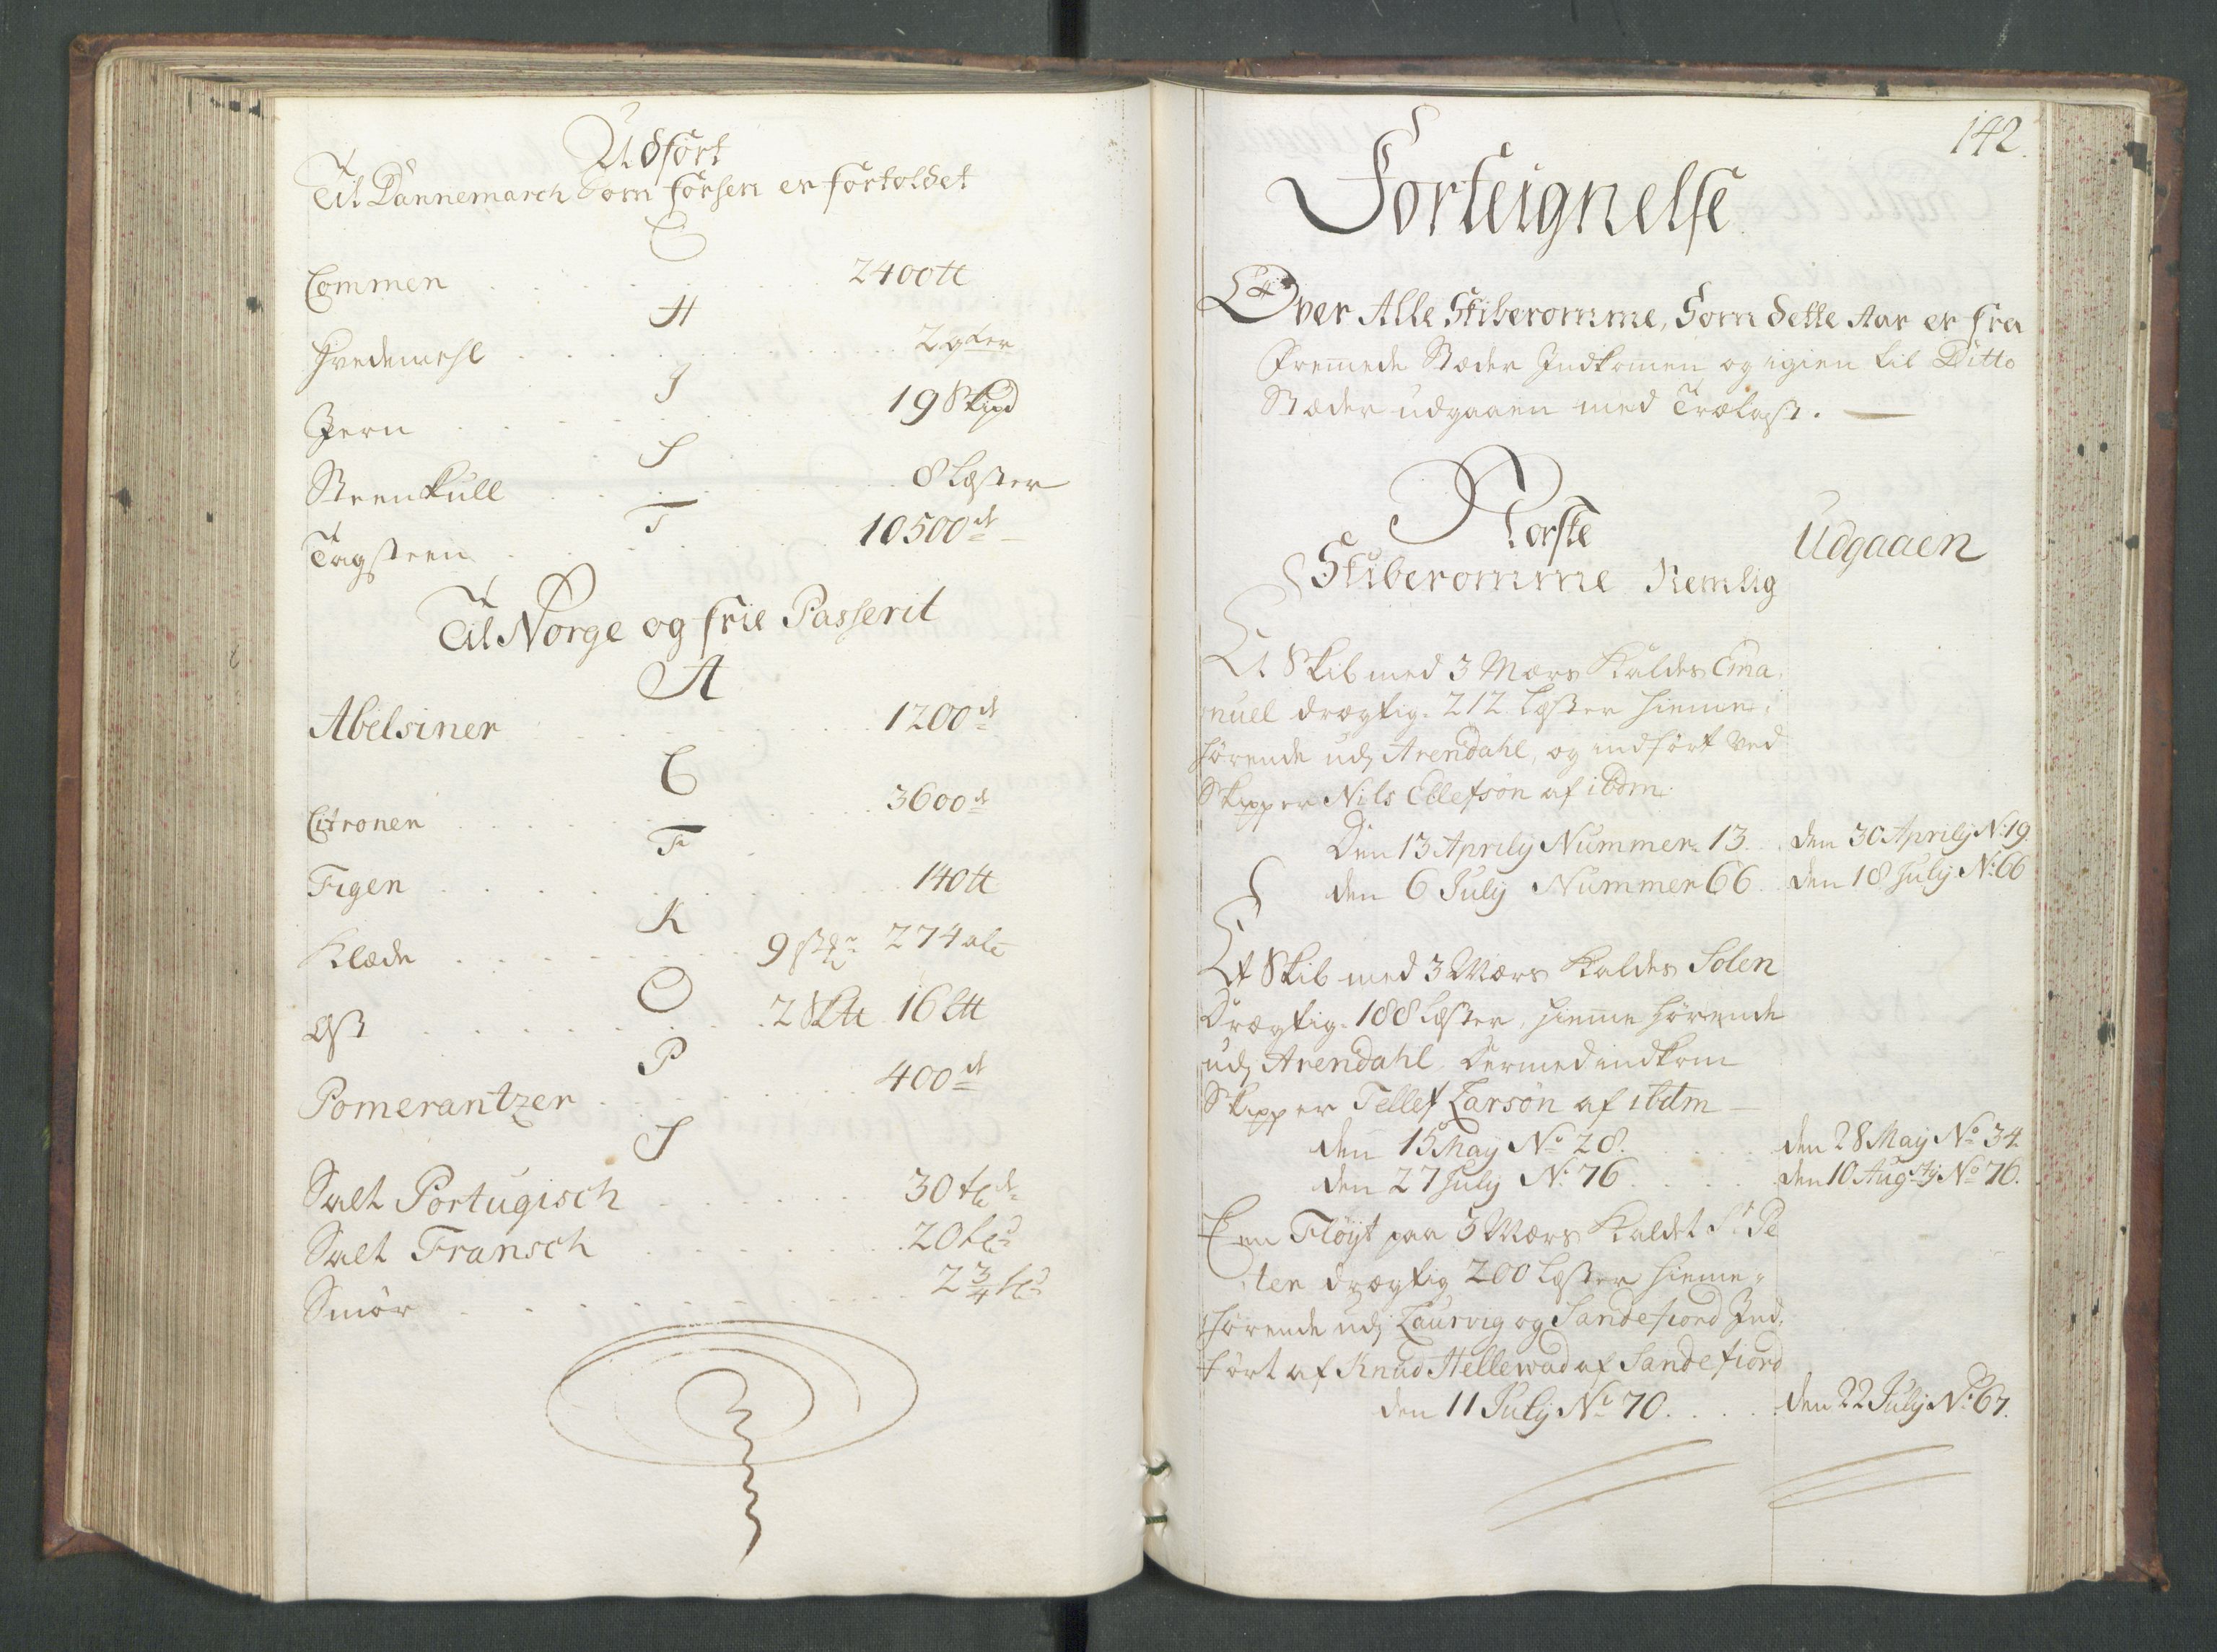 Udført
Til Dannemarch Som forhen er fortoldet
C
Commen . . . . . . 2400 ℔
H
Hvedemehl . . . . . . 2 qter
J
Jern . . . . . . 19 Skpd
S
Steenkull . . . . . . 8 Læster
T
Tagsteen . . . . . . 10500 st
Til Norge og frie Passerit
A
Abelsiner . . . . . . 1200 st
C
Citroner . . . . . . 3600 st
F
Figen . . . . . . 140 ℔
K
Klæde . . . . . . 9 stkr 274 al
O
Ost . . . . . . 2 Sk℔ 16 L℔
P
Pomerantzer . . . . . . 400 st
S
Salt Portugisch . . . . . . 30 tdr
Salt Fransch . . . . . . 20 td
Smör . . . . . . 2 3/4 td
142.
Forteignelse
Over Alle Skiberomme, Som dette Aar er fra
Fremede Stæder Indkomen og igien til Ditto
Stæder udgaaen med Trælast. —
Norske
Skiberomme Nemlig
Udgaaen
Et Skib med 3 Mærs Kaldes Ema,
nuel drægtig 212 Læster hieme,
hørende udj Arendahl, og indført ved
Skipper Nils Ellefsön af ibdm.
Den 13 Aprily Nummer 13. . den 30 Aprily No 19.
den 6 July Nummer 66. . den 18 July No 66
Et Skib med 3 Mærs Kaldes Solen
Drægtig 188 Læster, hieme hørende
udj Arendahl Dermed indkom
Skipper Tellef Larsön af ibdm —
den 15 May No 28. . . . den 28 May No 34.
den 27 July No 76 . . . den 10 Augsty No 76.
Een Fløyt paa 3 Mærs Kaldet St Pe
ter drægtig 200 Læster hieme,
hørende udj Laurvig og Sandefiord Ind,
ført af Knud Hellewad af Sandefiord
den 11 July No 70. . . . den 22 July No 67.